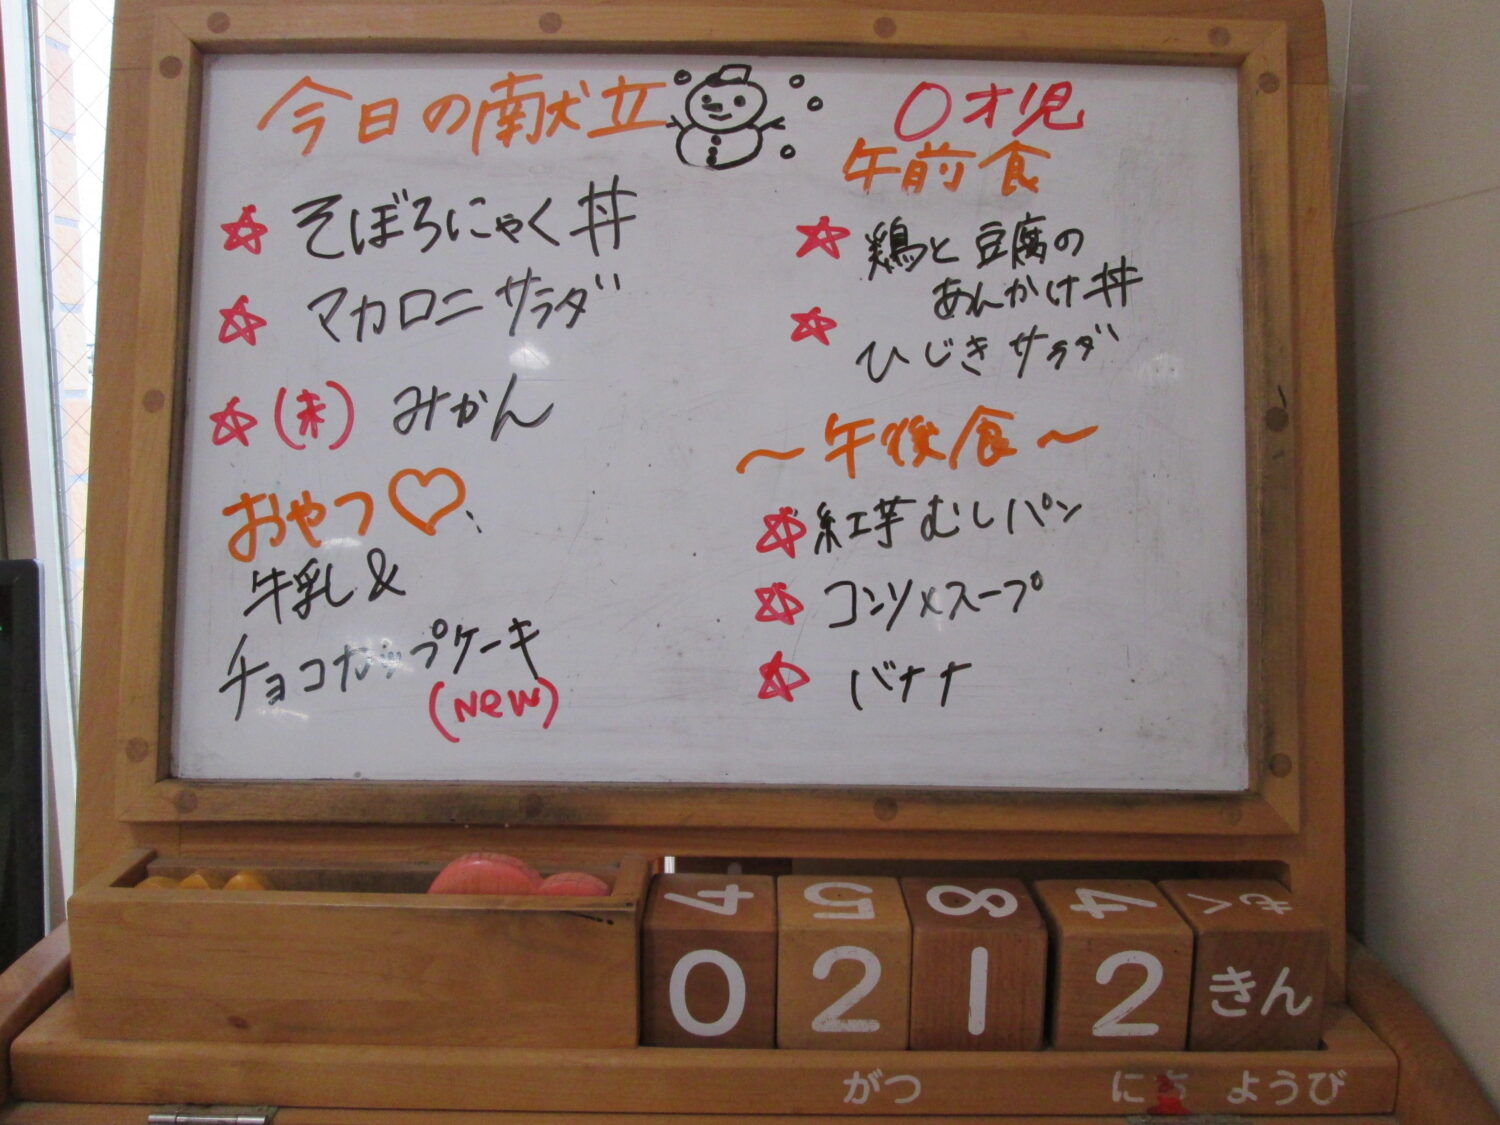 今日の献立
そぼろにゃく丼
マカロニサラダ
(未) みかん
おやつ♡
牛乳&
チョコカップケーキ
(NeW)
0才児
午前食
鶏と豆腐の
あんかけ丼
ひじきサラダ
~午後食~
紅芋むしパン
コンソメスープ
バナナ
4 5 8 4 もく
0 2 1 2 きん
がつ にち ようび